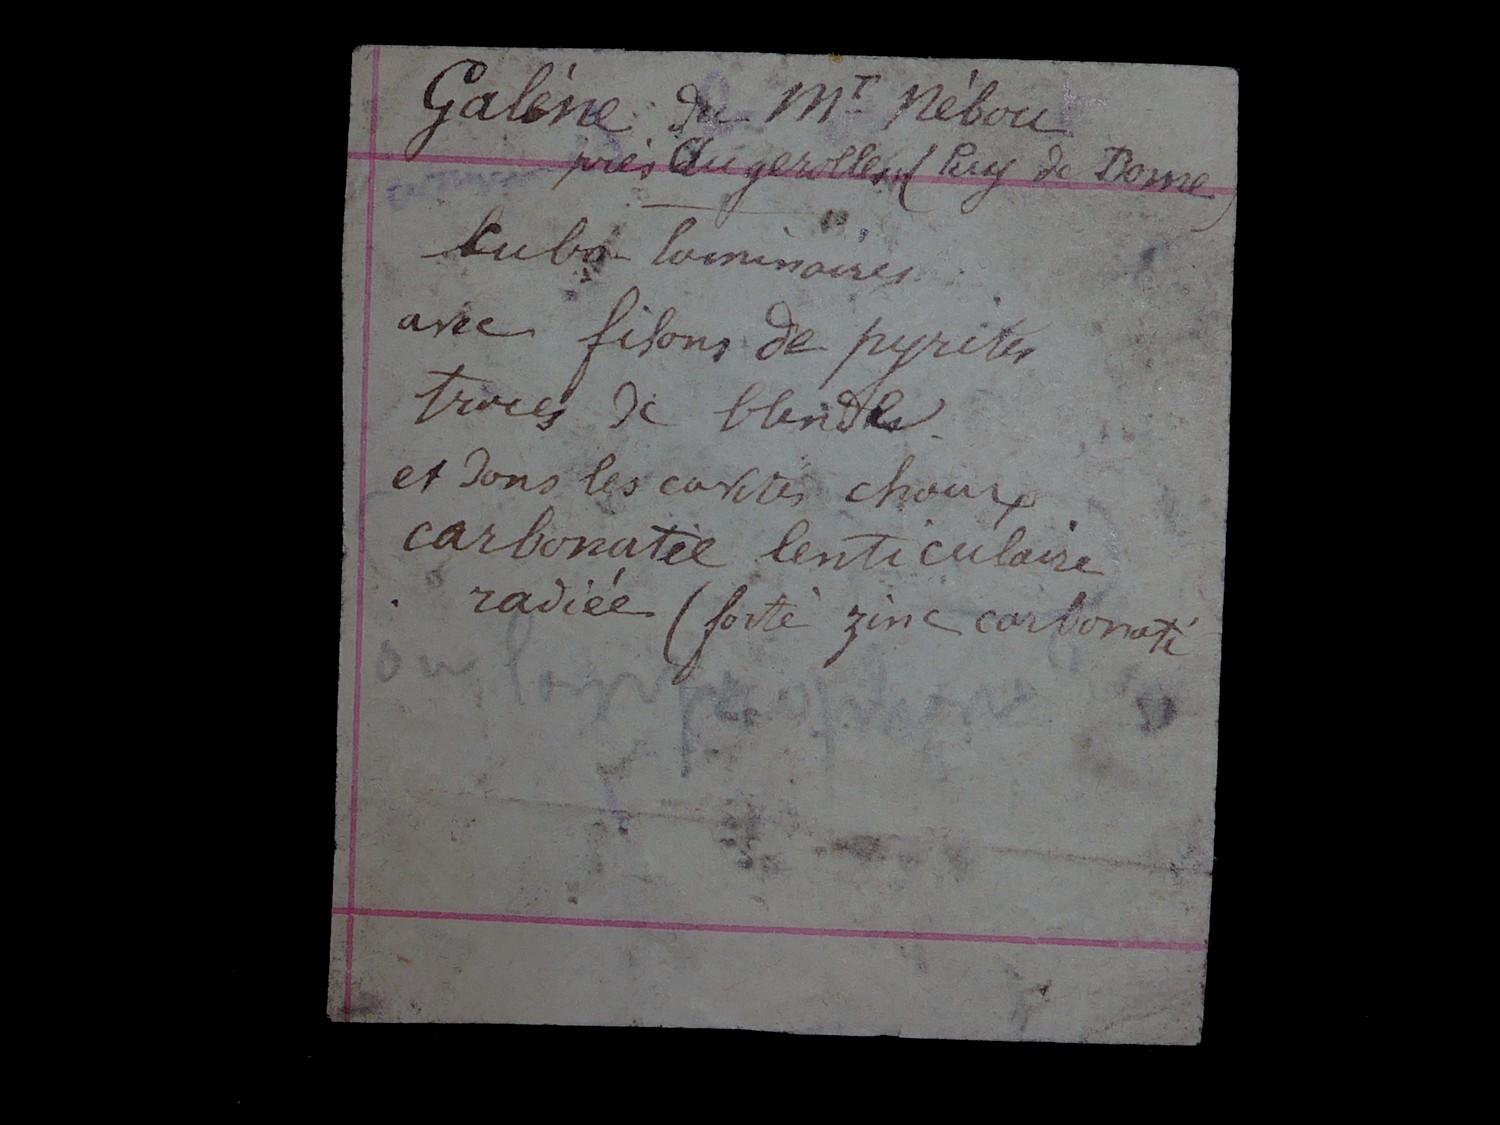 Galène du Mt Nébou
près Augerolles (Puy de Dome)
Cubo laminaires
avec filons de pyrites
traces de blende
et dans les cavités chaux
carbonatée lenticulaire
radiée (forte zinc carbonaté
ou